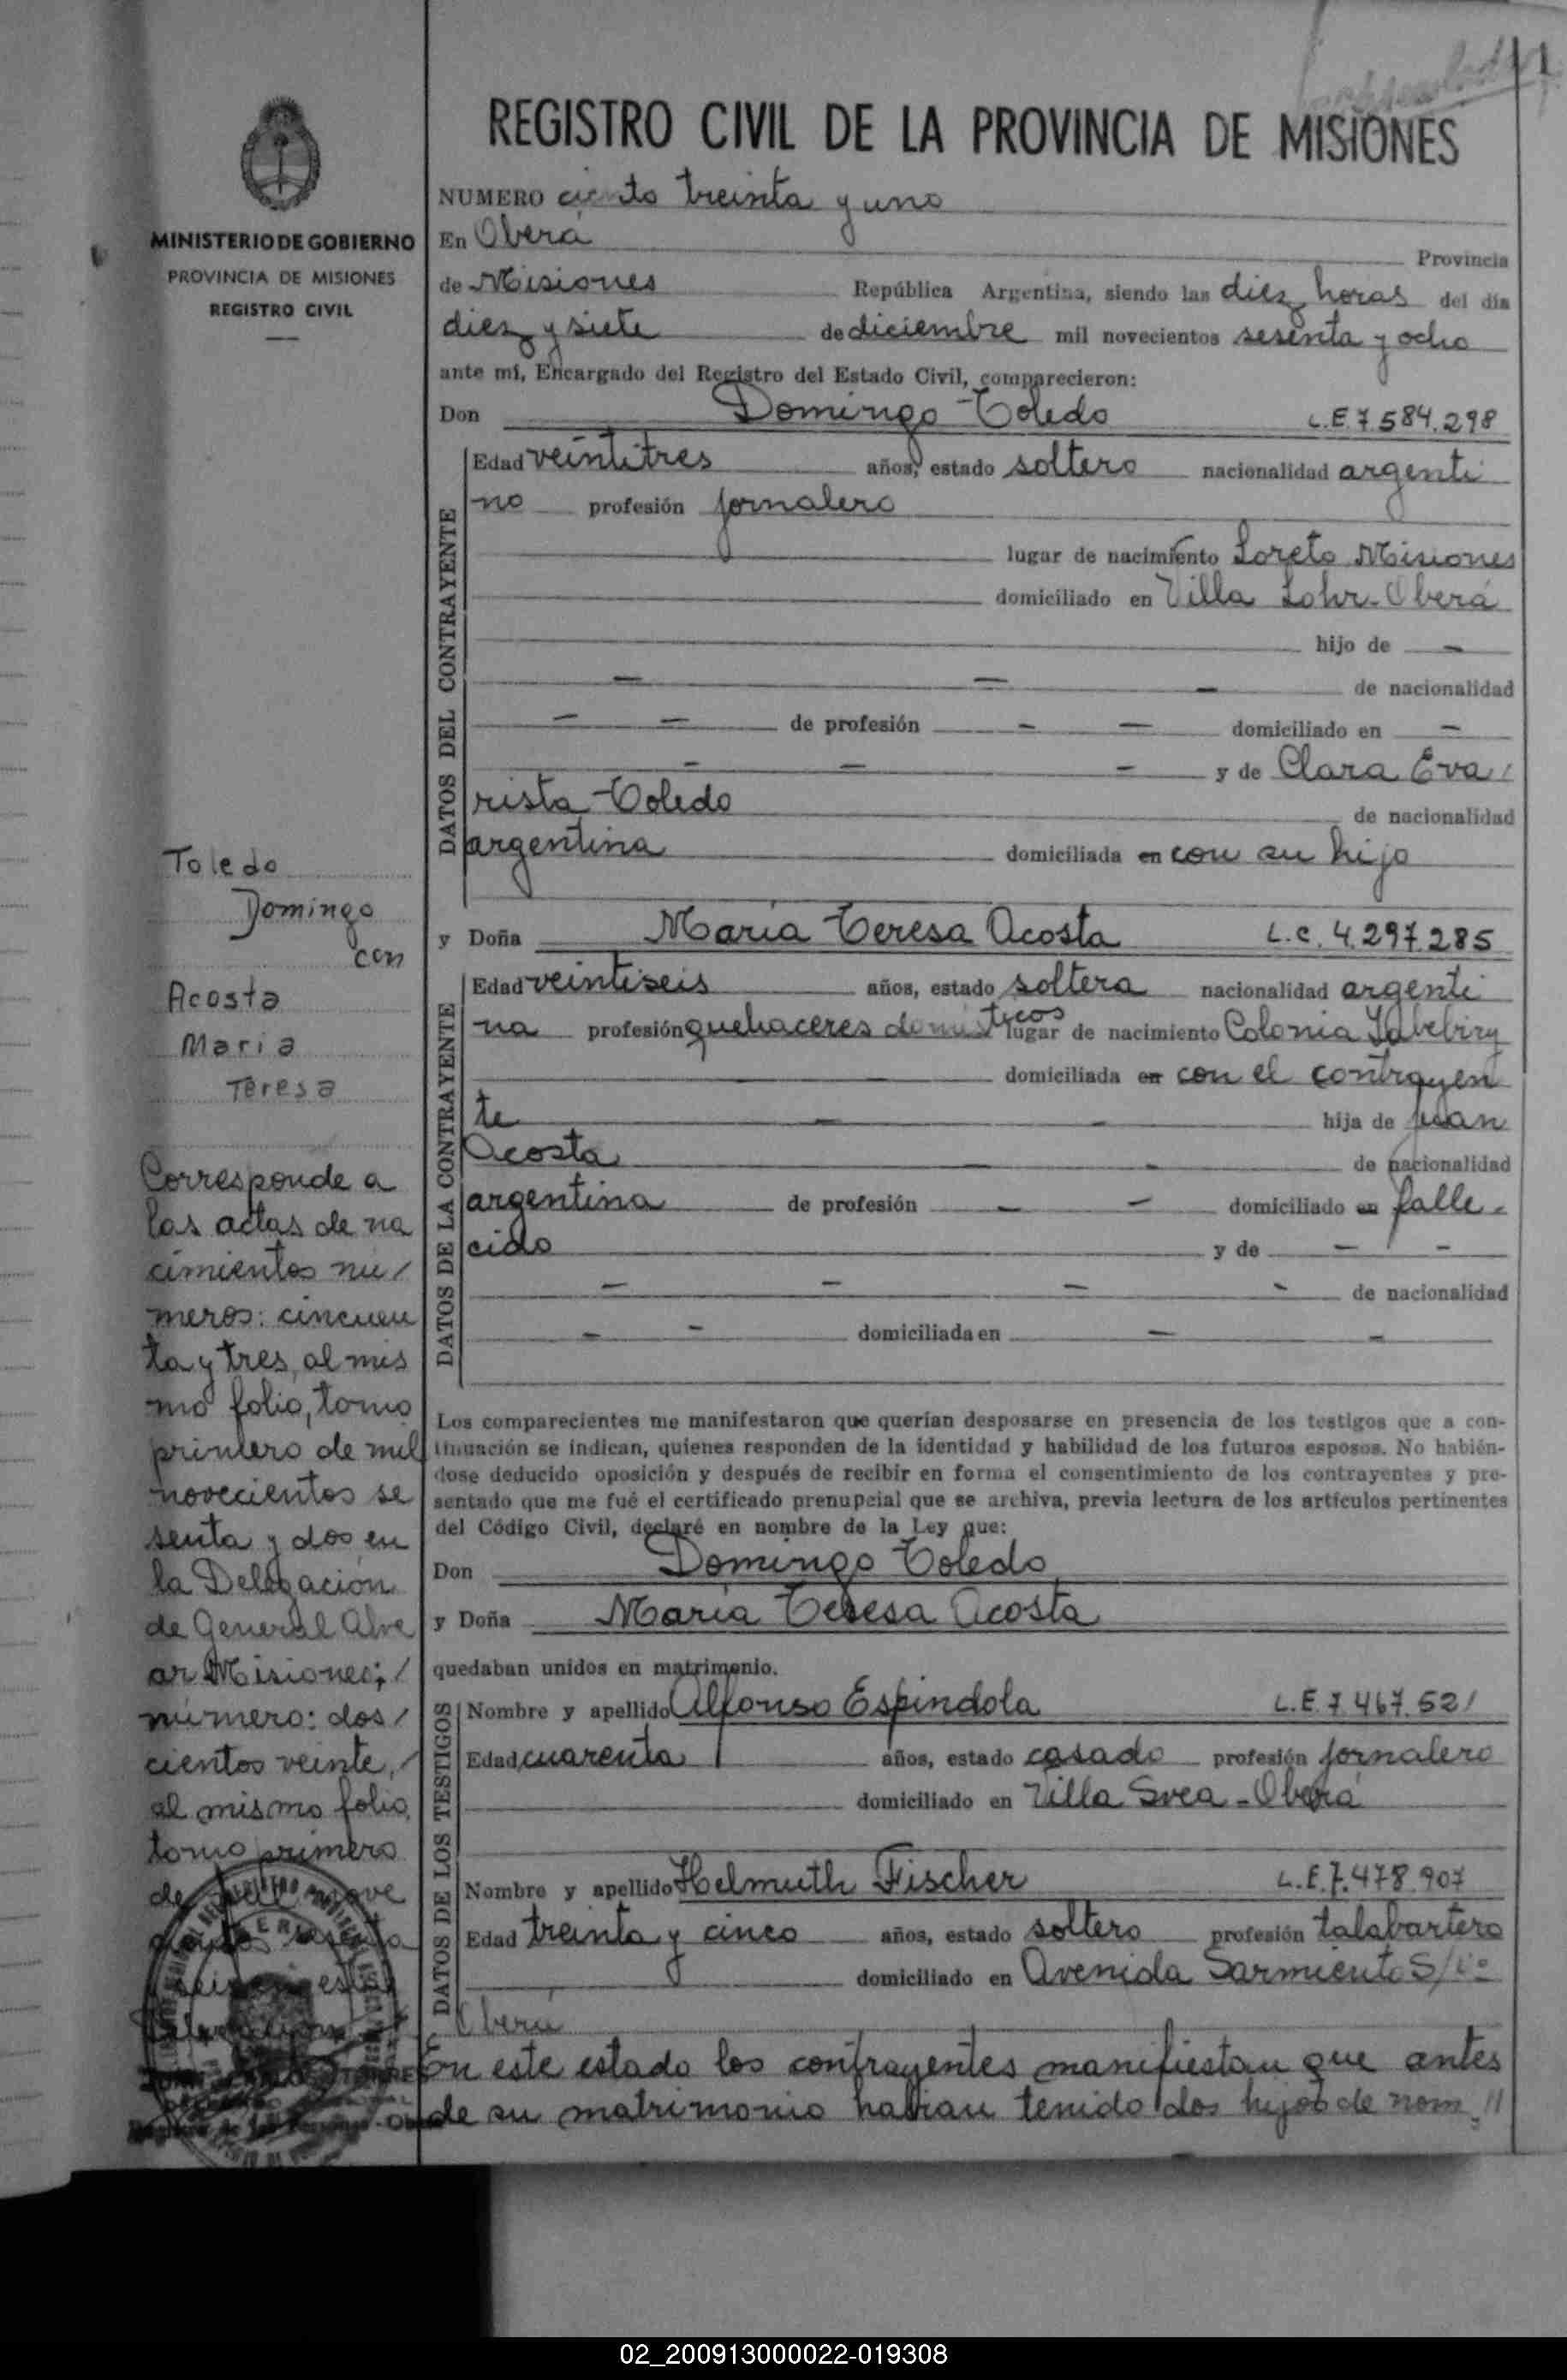 REGISTRO CIVIL DE LA PROVINCIA DE MISIONES
MINISTERIO DE GOBIERNO
PROVINCIA DE MISIONES
REGISTRO CIVIL
Toledo
Domingo
con
Acosta
Maria
Teresa
Corresponde a
las actas de na
cimientos nu/
meros: cincuen
ta y tres, al mis
mo folio, tomo
primero de mil
novecientos se
senta y dos en
la Delegación
de General Alve
ar Misiones; /
número: dos/
cientos veinte, /
al mismo folio,
tomo primero
de
NUMERO ciento treinta y uno
En Oberá Provincia
de Misiones República Argentina, siendo las diez horas del día
diez y siete de diciembre mil novecientos sesenta y ocho
ante mí, Encargado del Registro del Estado Civil, comparecieron:
Don Domingo Toledo L.E. 7.584.298
DATOS DEL CONTRAYENTE
Edad veintitres años, estado soltero nacionalidad argenti
no profesión jornalero
lugar de nacimiento Loreto Misiones
domiciliado en Villa Lohr - Oberá
hijo de -
- - - de nacionalidad
- - de profesión - - domiciliado en -
- - - y de Clara Eva/
rista Toledo de nacionalidad
argentina domiciliada en con su hijo
y Doña María Teresa Acosta L.C. 4.297.285
DATOS DE LA CONTRAYENTE
Edad veintiseis años, estado soltera nacionalidad argenti
na profesión quehaceres domésticos lugar de nacimiento Colonia Yabebiry
domiciliada en con el contrayen
te - - hija de Juan
Acosta - - de nacionalidad
argentina de profesión - - domiciliado en falle-
cido y de - -
- - - - de nacionalidad
- - domiciliada en - -
Los comparecientes me manifestaron que querían desposarse en presencia de los testigos que a con-
tinuación se indican, quienes responden de la identidad y habilidad de los futuros esposos. No habién-
dose deducido oposición y después de recibir en forma el consentimiento de los contrayentes y pre-
sentado que me fué el certificado prenupcial que se archiva, previa lectura de los artículos pertinentes
del Código Civil, declaré en nombre de la Ley que:
Don Domingo Toledo
y Doña María Teresa Acosta
quedaban unidos en matrimonio.
DATOS DE LOS TESTIGOS
Nombre y apellido Alfonso Espindola L.E. 7.467.521
Edad cuarenta años, estado casado profesión jornalero
domiciliado en Villa Svea - Oberá
Nombre y apellido Helmuth Fischer L.E. 7.478.907
Edad treinta y cinco años, estado soltero profesión talabartero
domiciliado en Avenida Sarmiento
Oberá
En este estado los contrayentes manifiestan que antes
de su matrimonio habian tenido dos hijos de nom. //
02_200913000022-019308